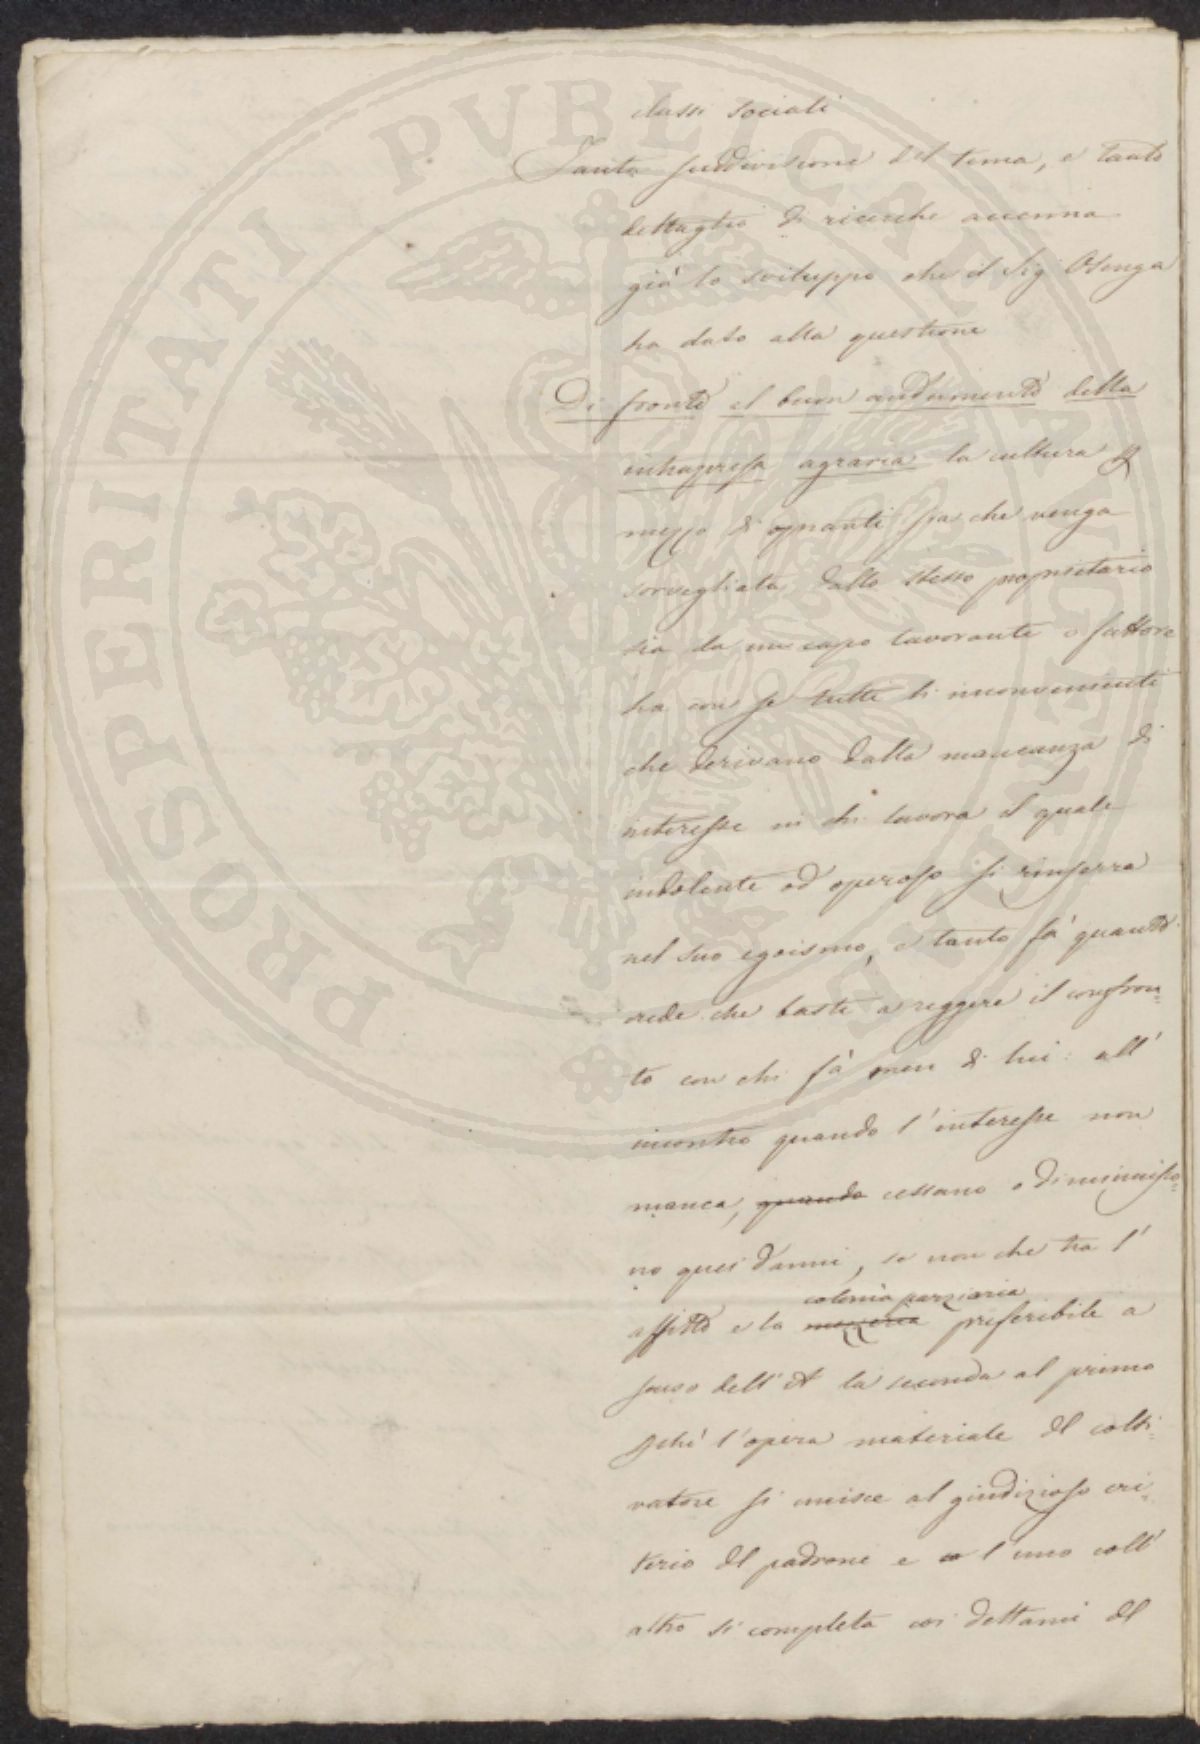 classi sociali
Tanta suddivisione del tema, e tanto
dettaglio di ricerche accenna
già lo sviluppo che il Sig. Osenga
ha dato alla questione
Di fronte al buon andamento della
intrapresa agraria la cultura p
mezzo di opranti sia che venga
sorvegliata dallo stesso proprietario
sia da un capo lavorante o fattore
ha con se tutti li inconvenienti
che derivano dalla mancanza di
interesse in chi lavora il quale
indolente od operoso si rinserra
nel suo egoismo, e tanto fà quanto
crede che basti a reggere il confron=
to con chi fà men di lui: all'
incontro quando l'interesse non
manca, quando cessano o diminuisco=
no quei danni, se non che tra l'
colonia parziaria
affitto e la mezzeria preferibile a
senso dell'A la seconda al primo
pchè l'opera materiale del colti=
vatore si unisce al giudizioso cri=
terio del padrone e co l'uno coll'
altro si completa coi dettami del
PROSPERITATI PVBLICAE AVGENDAE